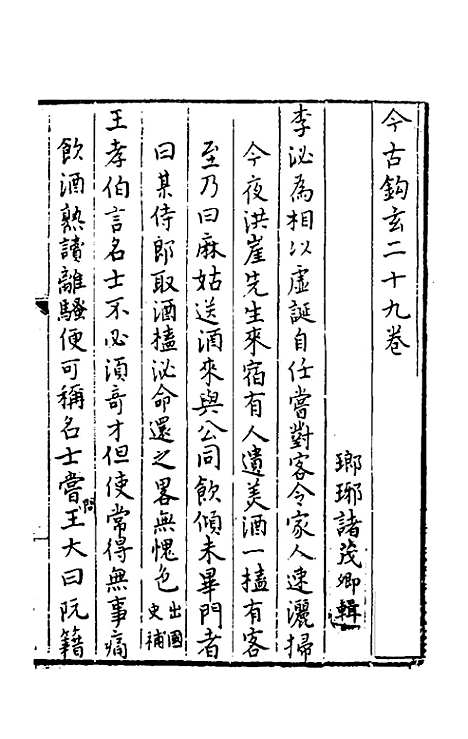 今古鈎玄二十九卷
瑯琊諸茂卿輯
李泌為相以虛誕自任嘗對客令家人速灑掃
今夜洪崖先生來宿有人遺美酒一榼有客
至乃曰麻姑送酒來與公同飲傾未畢門者
曰某侍郎取酒榼泌命還之畧無愧色出國史補
王孝伯言名士不必須奇才但使常得無事痛
飲酒熟讀離騷便可稱名士嘗問王大曰阮籍